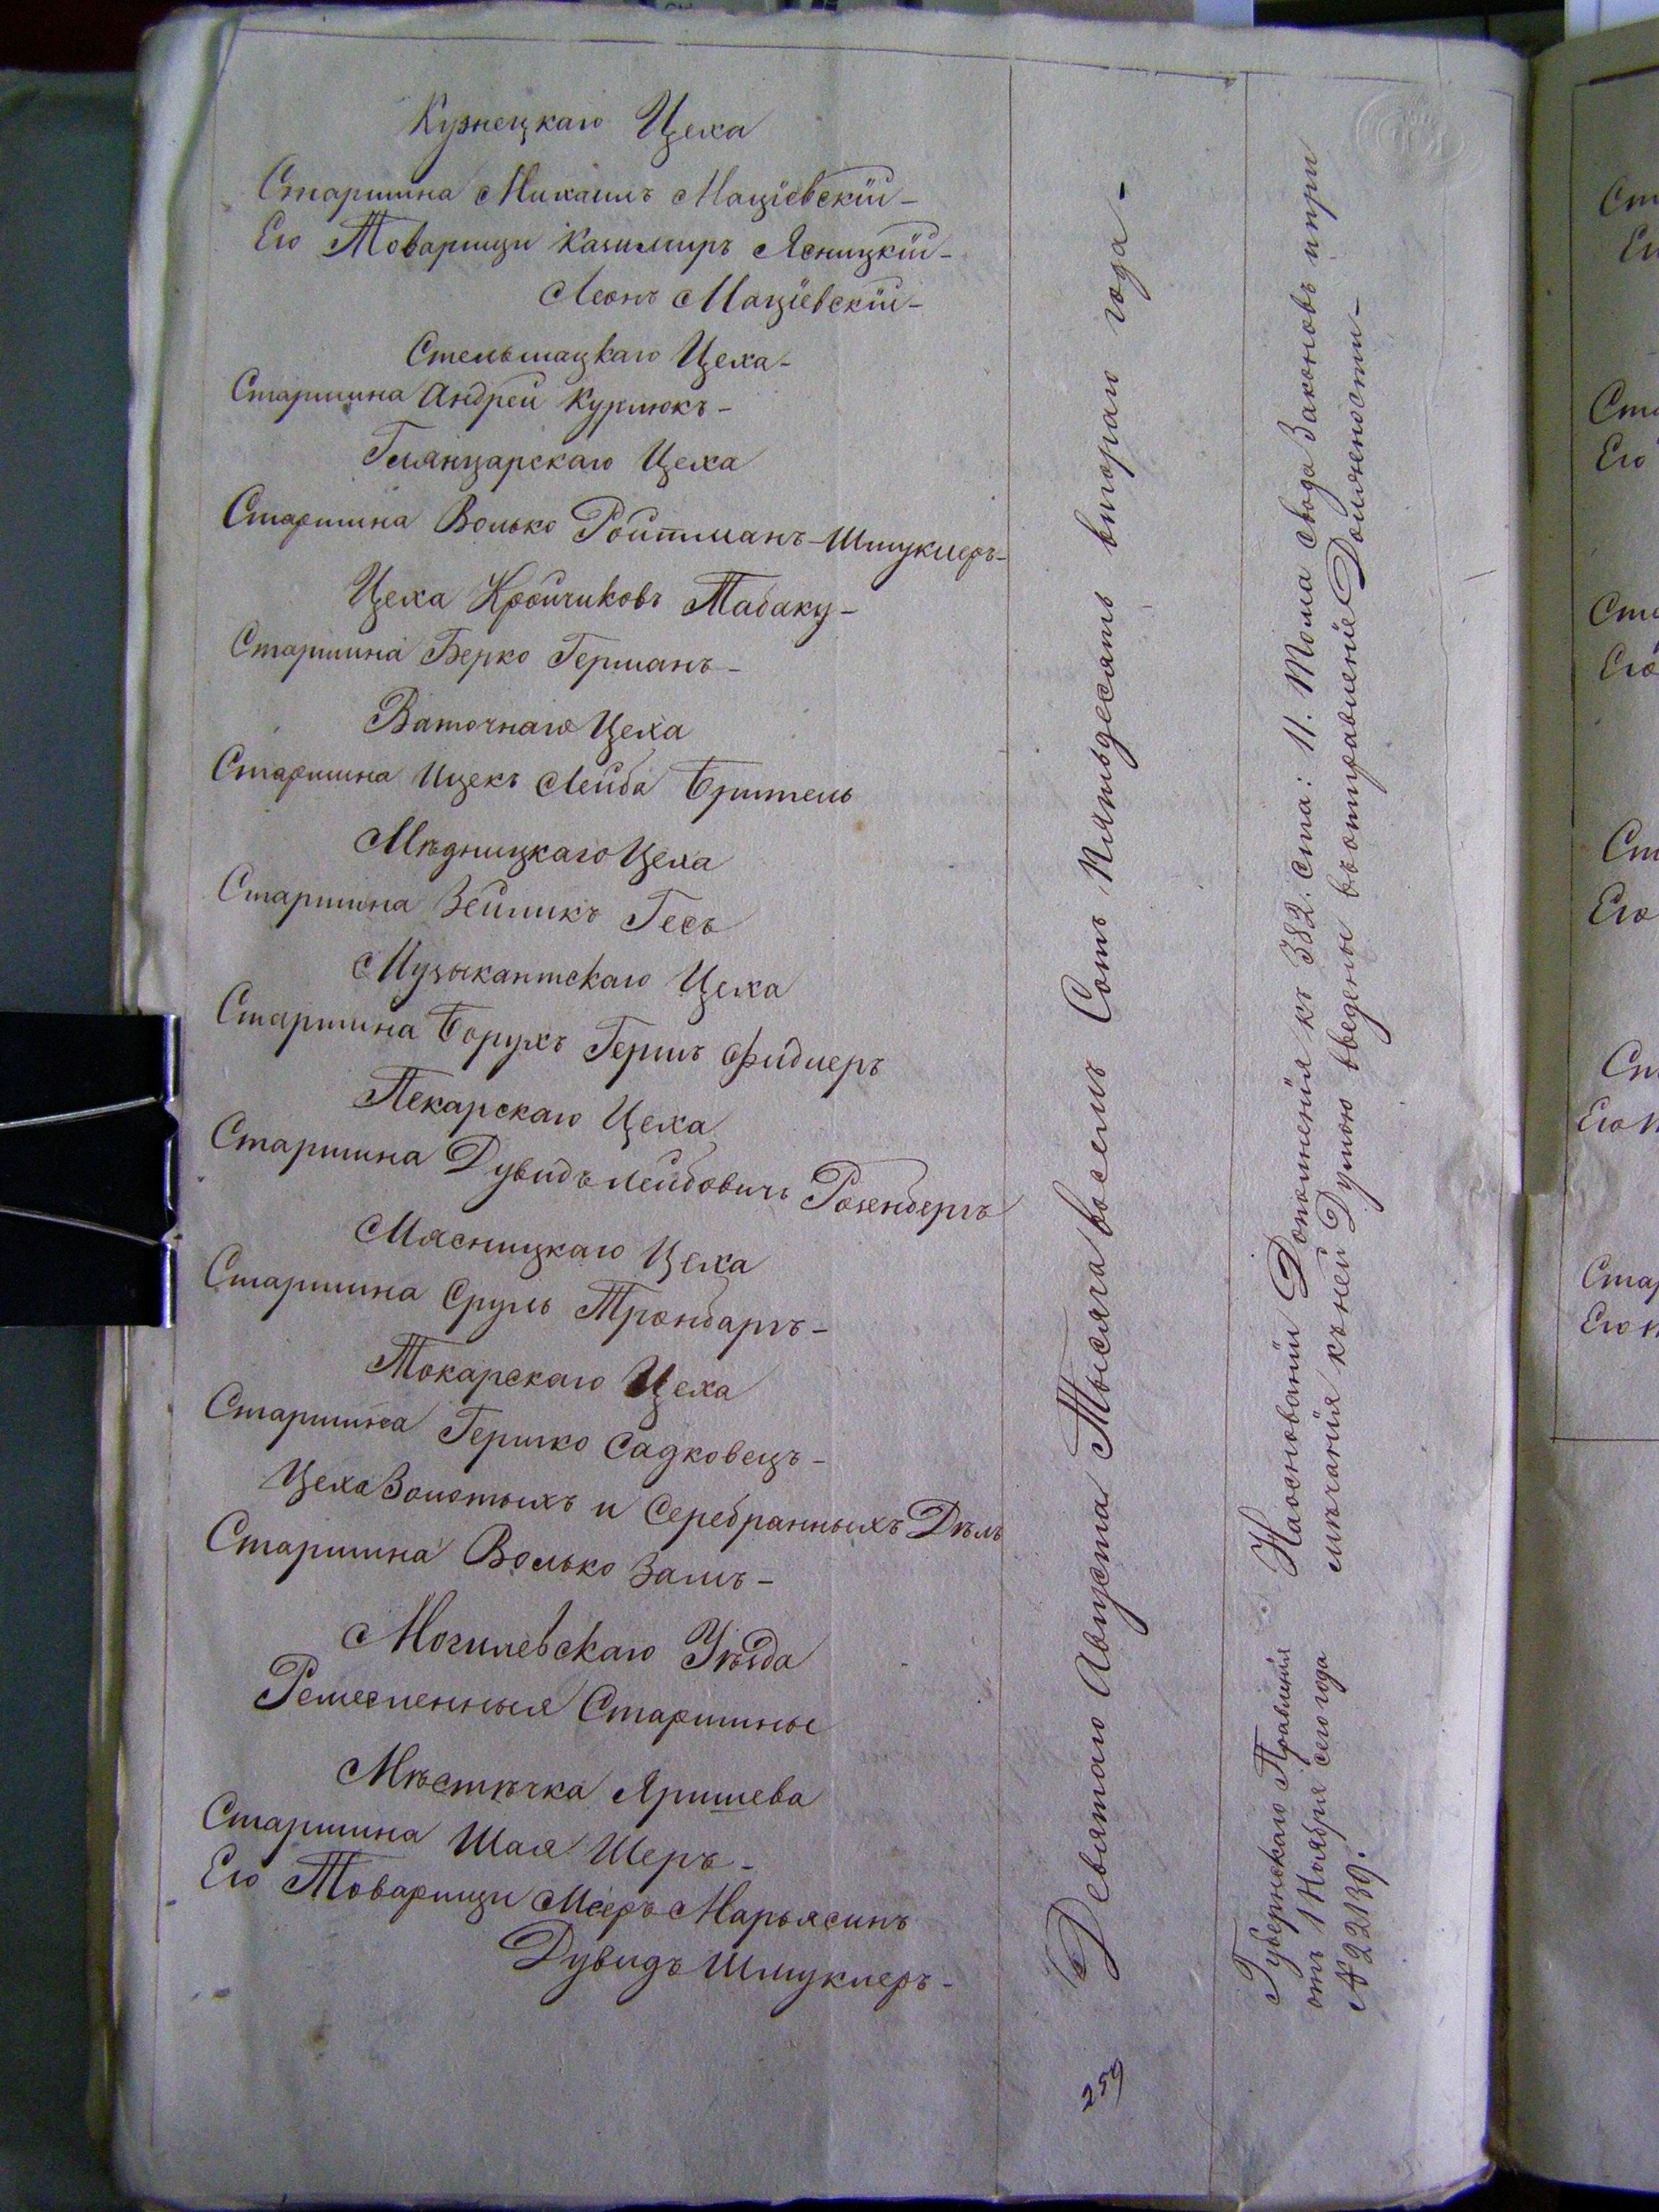 Кузнецкаго Цеха
Старшина Михаилъ Маціевскій-
Его Товарищи Казимиръ Ясницкій-
Леонъ Маціевскій-
Стельмацкаго Цеха-
Старшина Андрей Курлюкъ-
Глянцарскаго Цеха
Старшина Волько Ройтманъ-Шмуклеръ-
Цеха Кройчиковъ Табаку-
Старшина Берко Германъ-
Ваточнаго Цеха
Старшина Ицекъ Лейба Брител­ь
Мѣдницкаго Цеха
Старшина Зейликъ Гесъ
Музыкантскаго Цеха
Старшина Борухъ Гершъ Фидлеръ
Пекарскаго Цеха
Старшина Дувидъ Лейбовичъ Розенбергъ
Мясницкаго Цеха
Старшина Сруль Тронбаргъ-
Токарскаго Цеха
Старшина Гершко Садковецъ-
Цеха Золотыхъ и Серебранныхъ Дѣлъ
Старшина Волько Залъ-
Могилевскаго Уѣзда
Ремесленныя Старшины
Мѣстѣчка Яришева
Старшина Шая Шеръ-
Его Товарищи Мееръ Марьясинъ
Дувидъ Шмуклеръ-
Девятаго Августа Тысяча восемь Сотъ Пятьдесятъ втораго года-
259
Губернскаго Правленія
отъ 1 Ноября сего года
№ 22139.
На основаніи Дополненія къ 382. ста: 11. Тома свода Законовъ и при
мѣчанія къ ней Думою введены въ отправленіе Должности-
Ст
Ег
Ста
Его
Ста
Его
Ст
Его
Ст
Его т
Стар
Его т